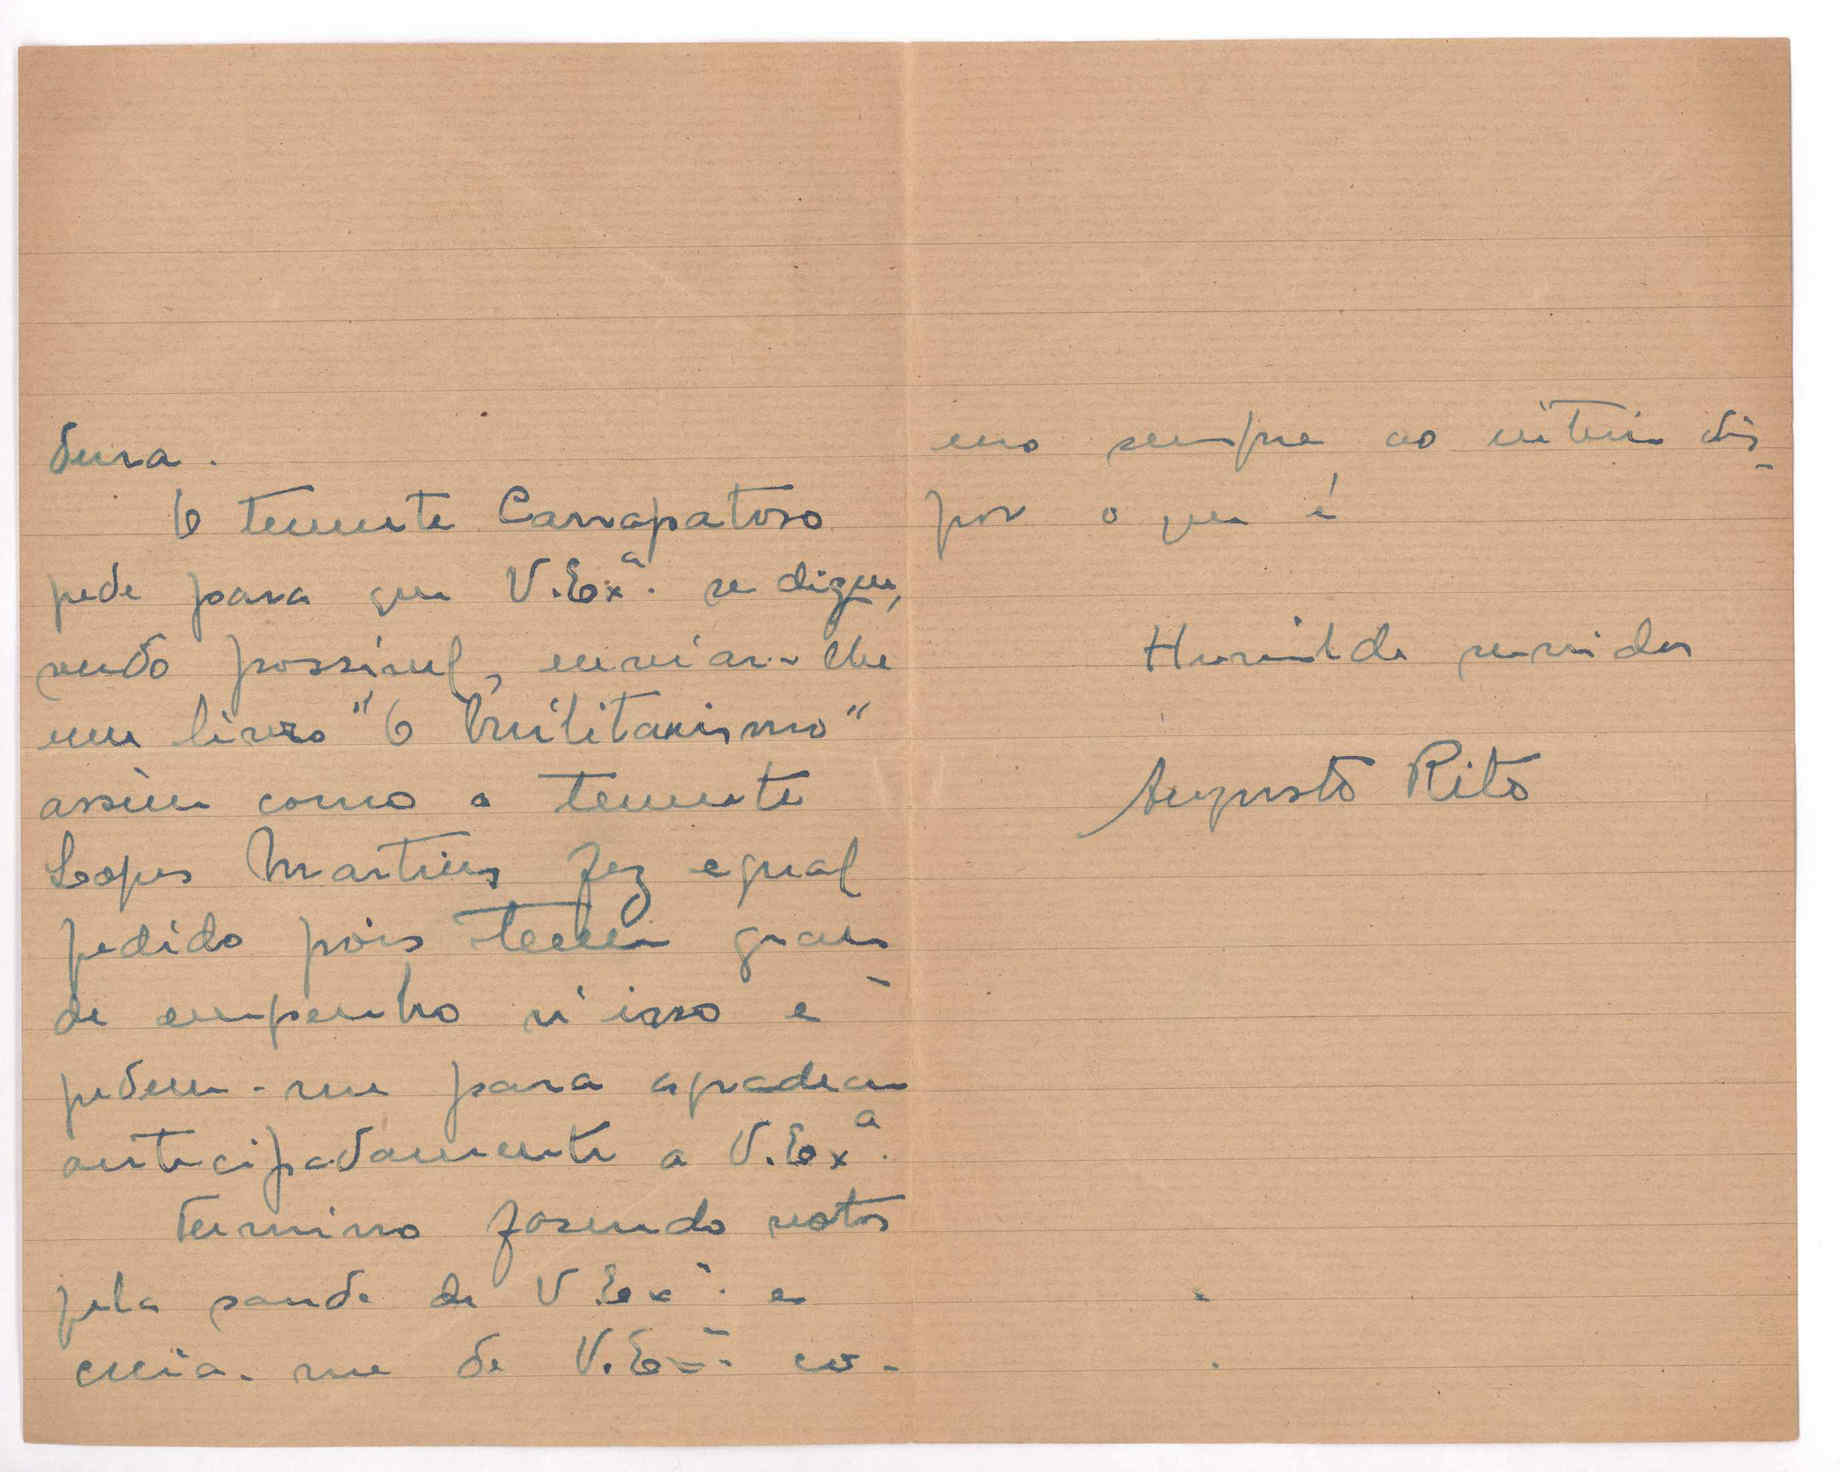 dura.
O tenente Carrapatoso
pede para que V. Exª. se digne,
sendo possivel, enviar-lhe
um livro "O Militarismo"
assim como o tenente
Lopes Martins fez egual
pedido pois teem gran-
de empenho n'isso e
pedem-me para agradecer
antecipadamente a V. Exª.
Termino fasendo votos
pela saude de V. Exª. e
creia-me de V. Exª. co-
mo sempre ao inteiro dis-
por o que é
Humilde servidor
Augusto Rito